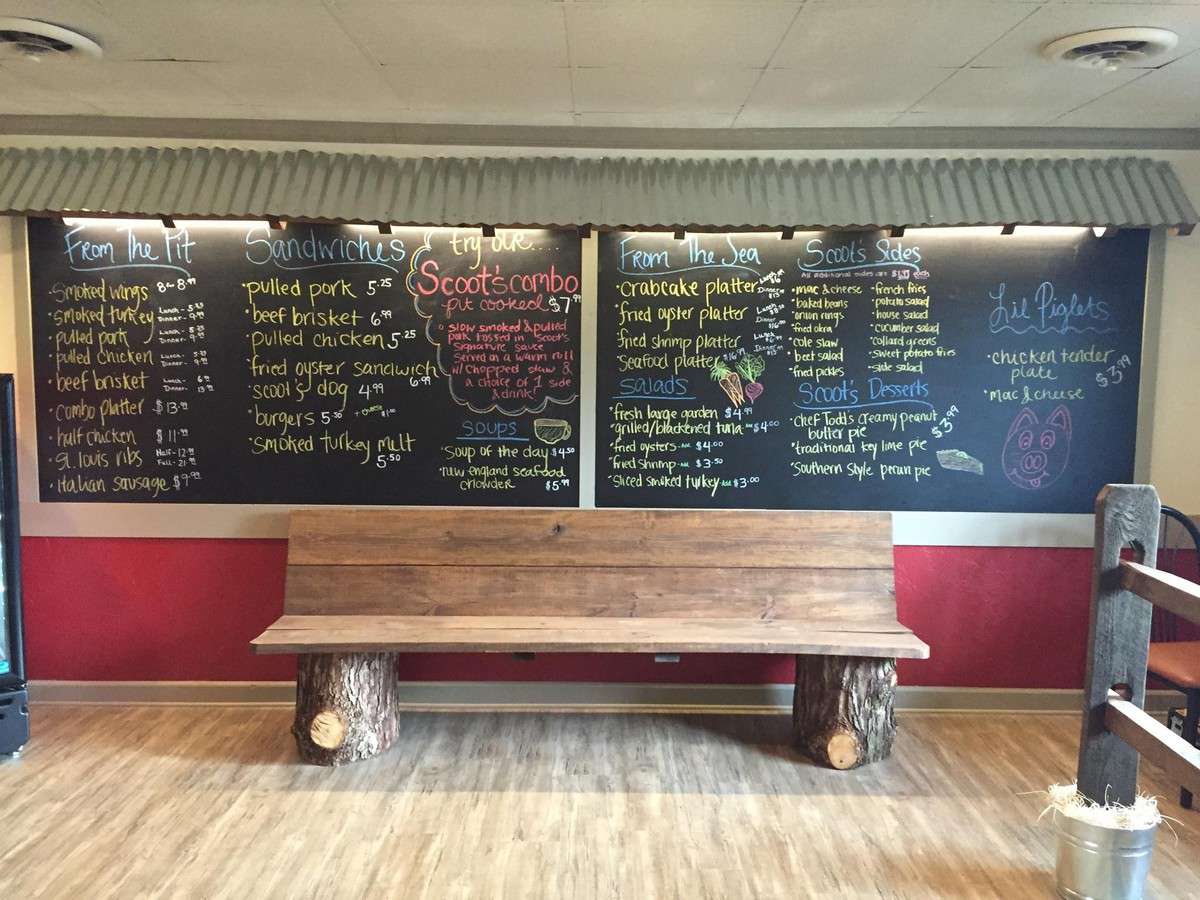 From The Pit
• Smoked wings 8 for 8.99
• smoked turkey Lunch - 5.25
Dinner - 9.99
• pulled pork Lunch - 5.25
Dinner - 9.99
• pulled chicken Lunch - 5.25
Dinner - 9.99
• beef brisket Lunch - 6.99
Dinner -
• combo platter $13.99
• half chicken $11.99
• St. louis ribs Half - 12.99
Full - 21.99
• italian sausage $9.99
Sandwiches
• pulled pork 5.25
• beef brisket 6.99
• pulled chicken 5.25
• fried oyster sandwich
6.99
• scoot's dog 4.99
• burgers 5.50 + cheese $1.00
• Smoked turkey mult
5.50
try our....
Scoot's combo
pit cooked $7.99
• slow smoked & pulled
pork tossed in Scoot's
signature sauce
Served on a warm roll
w/ chopped slaw &
a choice of 1 side
& drink!
soups
• soup of the day $4.50
• new england seafood
chowder $5.99
From The Sea
• Crabcake platter Lunch
Dinner
• fried oyster platter Lunch
Dinner
• fried shrimp platter Lunch
Dinner
• Seafood platter
salads
• fresh large garden $4.99
• grilled/blackened tuna Add $4.00
• fried oysters - Add $4.00
• fried shrimp - Add $3.50
• Sliced smoked turkey - Add $3.00
Scoot's Sides
All additional sides are each
• mac & cheese
• baked beans
• onion rings
• fried okra
• cole slaw
• beet salad
• fried pickles
• french fries
• potato salad
• house salad
• cucumber salad
• collard greens
• sweet potato fries
• side salad
Scoot's Desserts
• Chef Todd's creamy peanut
butter pie $3.99
• traditional key lime pie
• Southern Style pecan pie
Lil Piglets
• chicken tender
plate $3.99
• mac & cheese